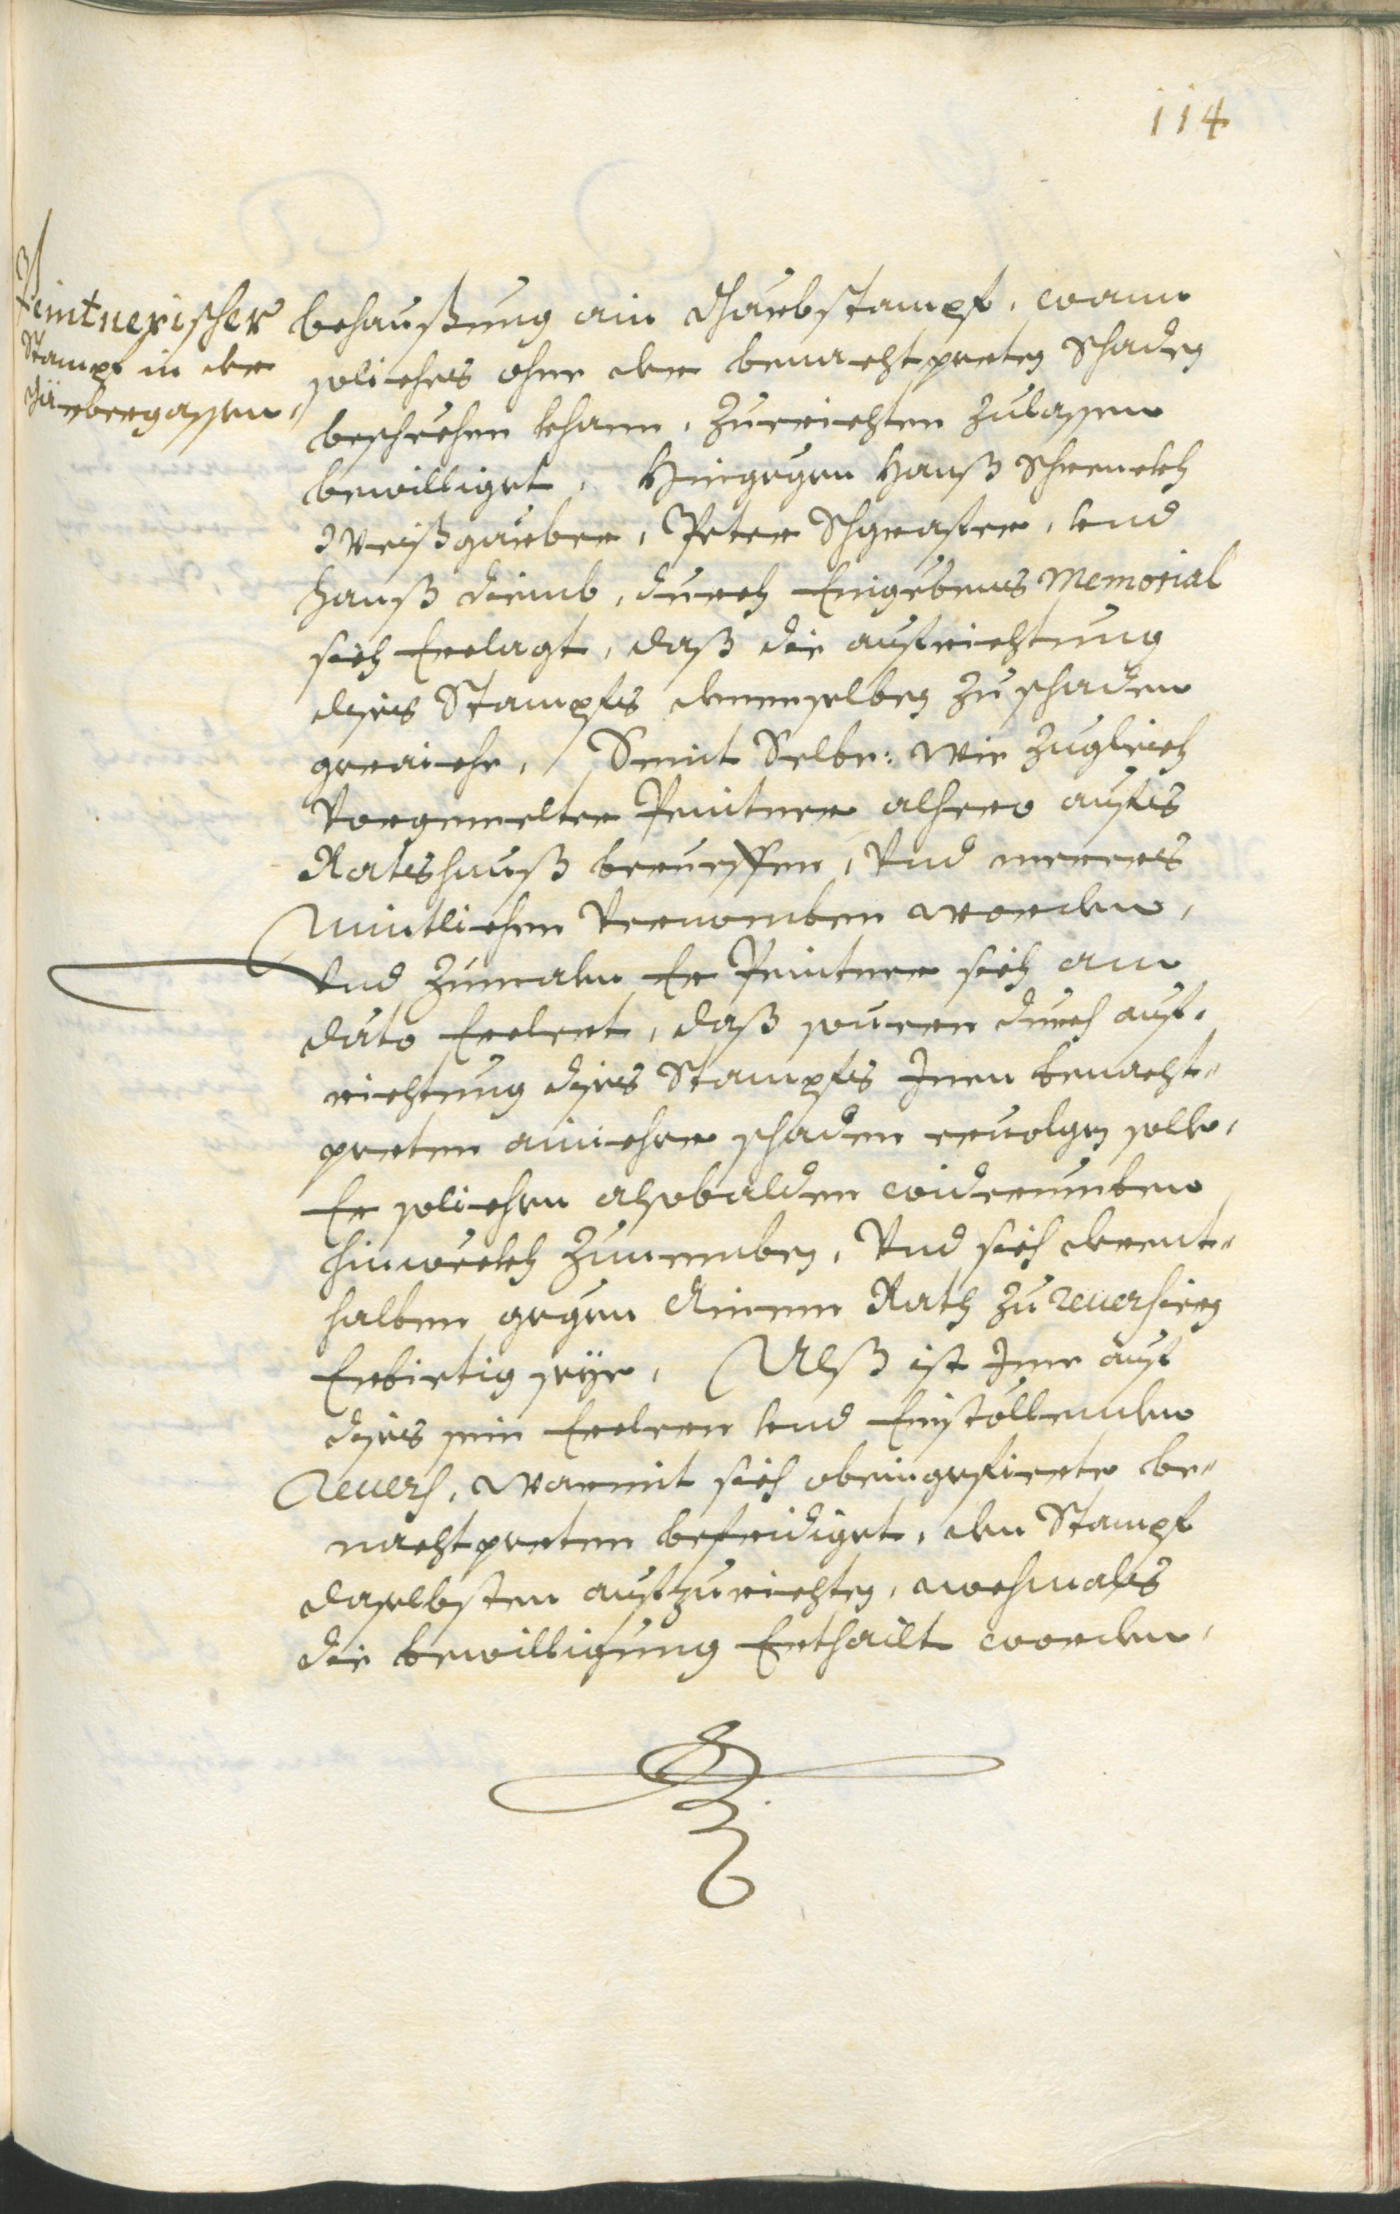 114
Peintnerischer
Stampf in der
Färbergassen,
behaußung ain Scharbstampf, wann
soliches ohne der benachtperten Schaden
beschechen khann, Zuerichten Zulassen
bewilliget, Hingegen Hanß Schrenckh
Weißgärber, Peter Schgraffer, und
Hanß Dirnb, durch Eingebenes Memorial
sich Erclagt, daß die aufrichtung
dises Stampfs denenselben zu schaden
geraiche, Seint Selbe: wie zugleich
Vorgemelter Peintner alhero aufs
Rathshauß berueffen, Vnd merers
Mintlichen Vernomben worden,
Vnd zumalen Er Peintner sich am
dato Erclert, daß souern durch auf-
richtung dises Stampfs Inen benacht-
perten ainicher schaden ervolgen solle,
Er solichen alsobalden widerumben
hinweckh zunemben, Vnd sich derent-
halben gegen Einem Rath zu reuersiern
Erbietig seye, Alß ist Ime auf
dises sein Ercleren und Einstöllenden
Reuers, warmit sich obeingefierte be-
nachtperten befridiget, den Stampf
daselbsten aufzurichten, nochmals
die bewilligung Erthailt worden,